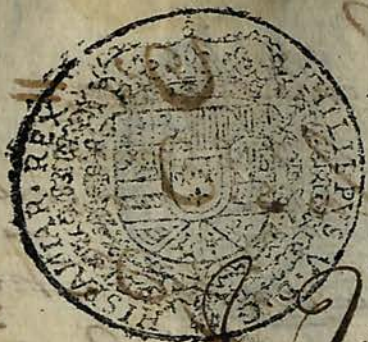 PHILIPPVS V. D. G.
HISPANIAR. REX